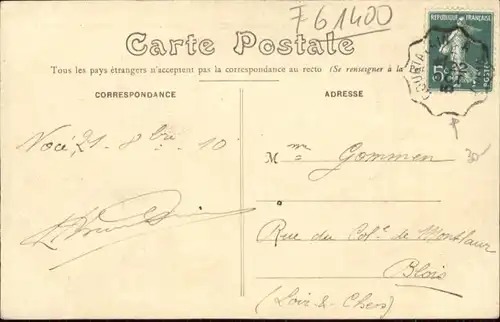 F61400
Carte Postale
Tous les pays étrangers n'acceptent pas la correspondance au recto (Se renseigner à la
REPUBLIQUE FRANÇAISE
5c
POSTES
CORRESPONDANCE
ADRESSE
Nocé, 21 - 8bre 10
Mme Gommen
30
Rue du Col. de Montlaur
Blois
(Loir-&-Cher)